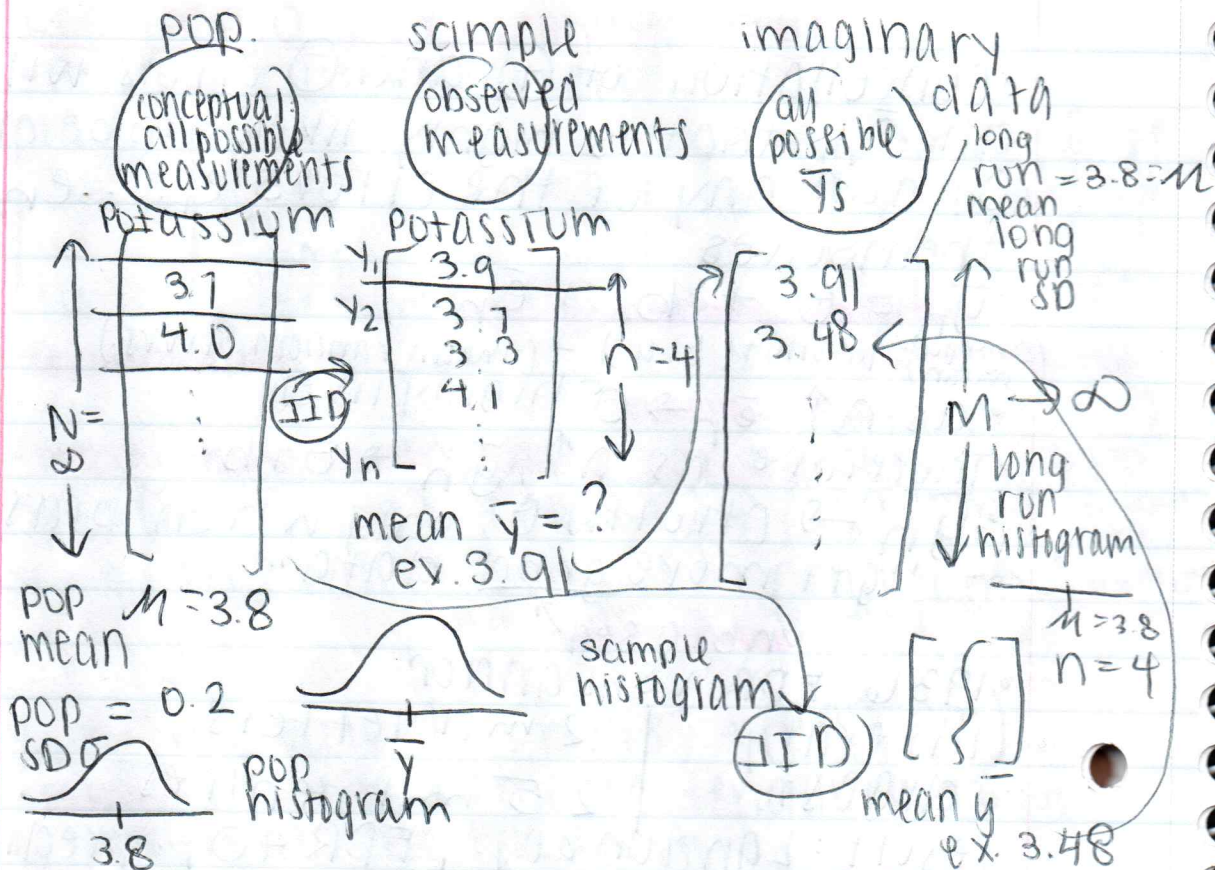 pop.
conceptual
all possible
measurements
potassium
3.7
4.0
⋮
N=
∞
pop μ=3.8
mean
pop = 0.2
SD σ
3.8
pop
histogram
IID
sample
observed
measurements
potassium
y₁ 3.9
y₂ 3.7
3.3
4.1
yn ⋮
n=4
mean ȳ = ?
ex. 3.91
ȳ
sample
histogram
imaginary
data
all
possible
ȳs
long
run = 3.8 = μ
mean
long
run
SD
3.91
3.48
⋮
M → ∞
long
run
histogram
μ=3.8
n=4
IID
mean ȳ
ex. 3.48